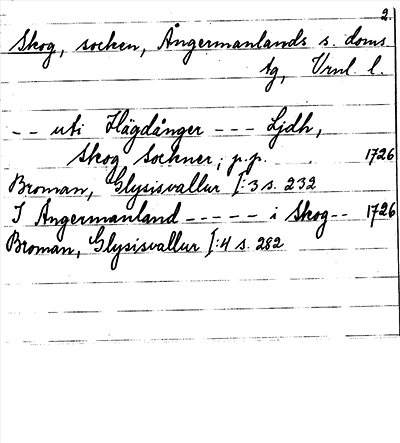 2.
Skog, socken, Ångermanlands s. doms.
tg, Vrnl. l.
-- uti Högdånger --- Ljdh,
Skog Sockner, p.p. 1726
Broman, Glysisvallur I:3 s. 232
I Ångermanland ----- i Skog-- 1726
Broman, Glysisvallur I:4 s. 282